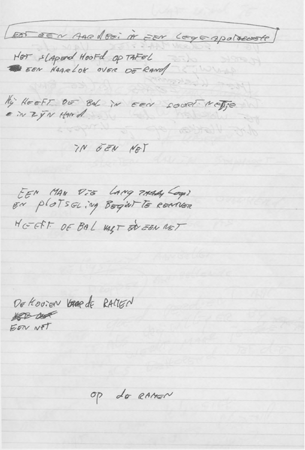 EET EEN AARDBEI IN EEN
HET SLAPEND HOOFD OP TAFEL
EEN HAARLOK OVER DE ROND
HIJ HEEFT DE BAL IN EEN SOORT NETJE
IN ZIJN HAND
IN EEN NET
EEN MAN DIE LANG
EN PLOTSELING BEGINT TE RENNEN
HEEFT DE BAL VAST IN EEN NET
DE KOOIEN DE RAMEN
EEN NET
OP de RAMEN